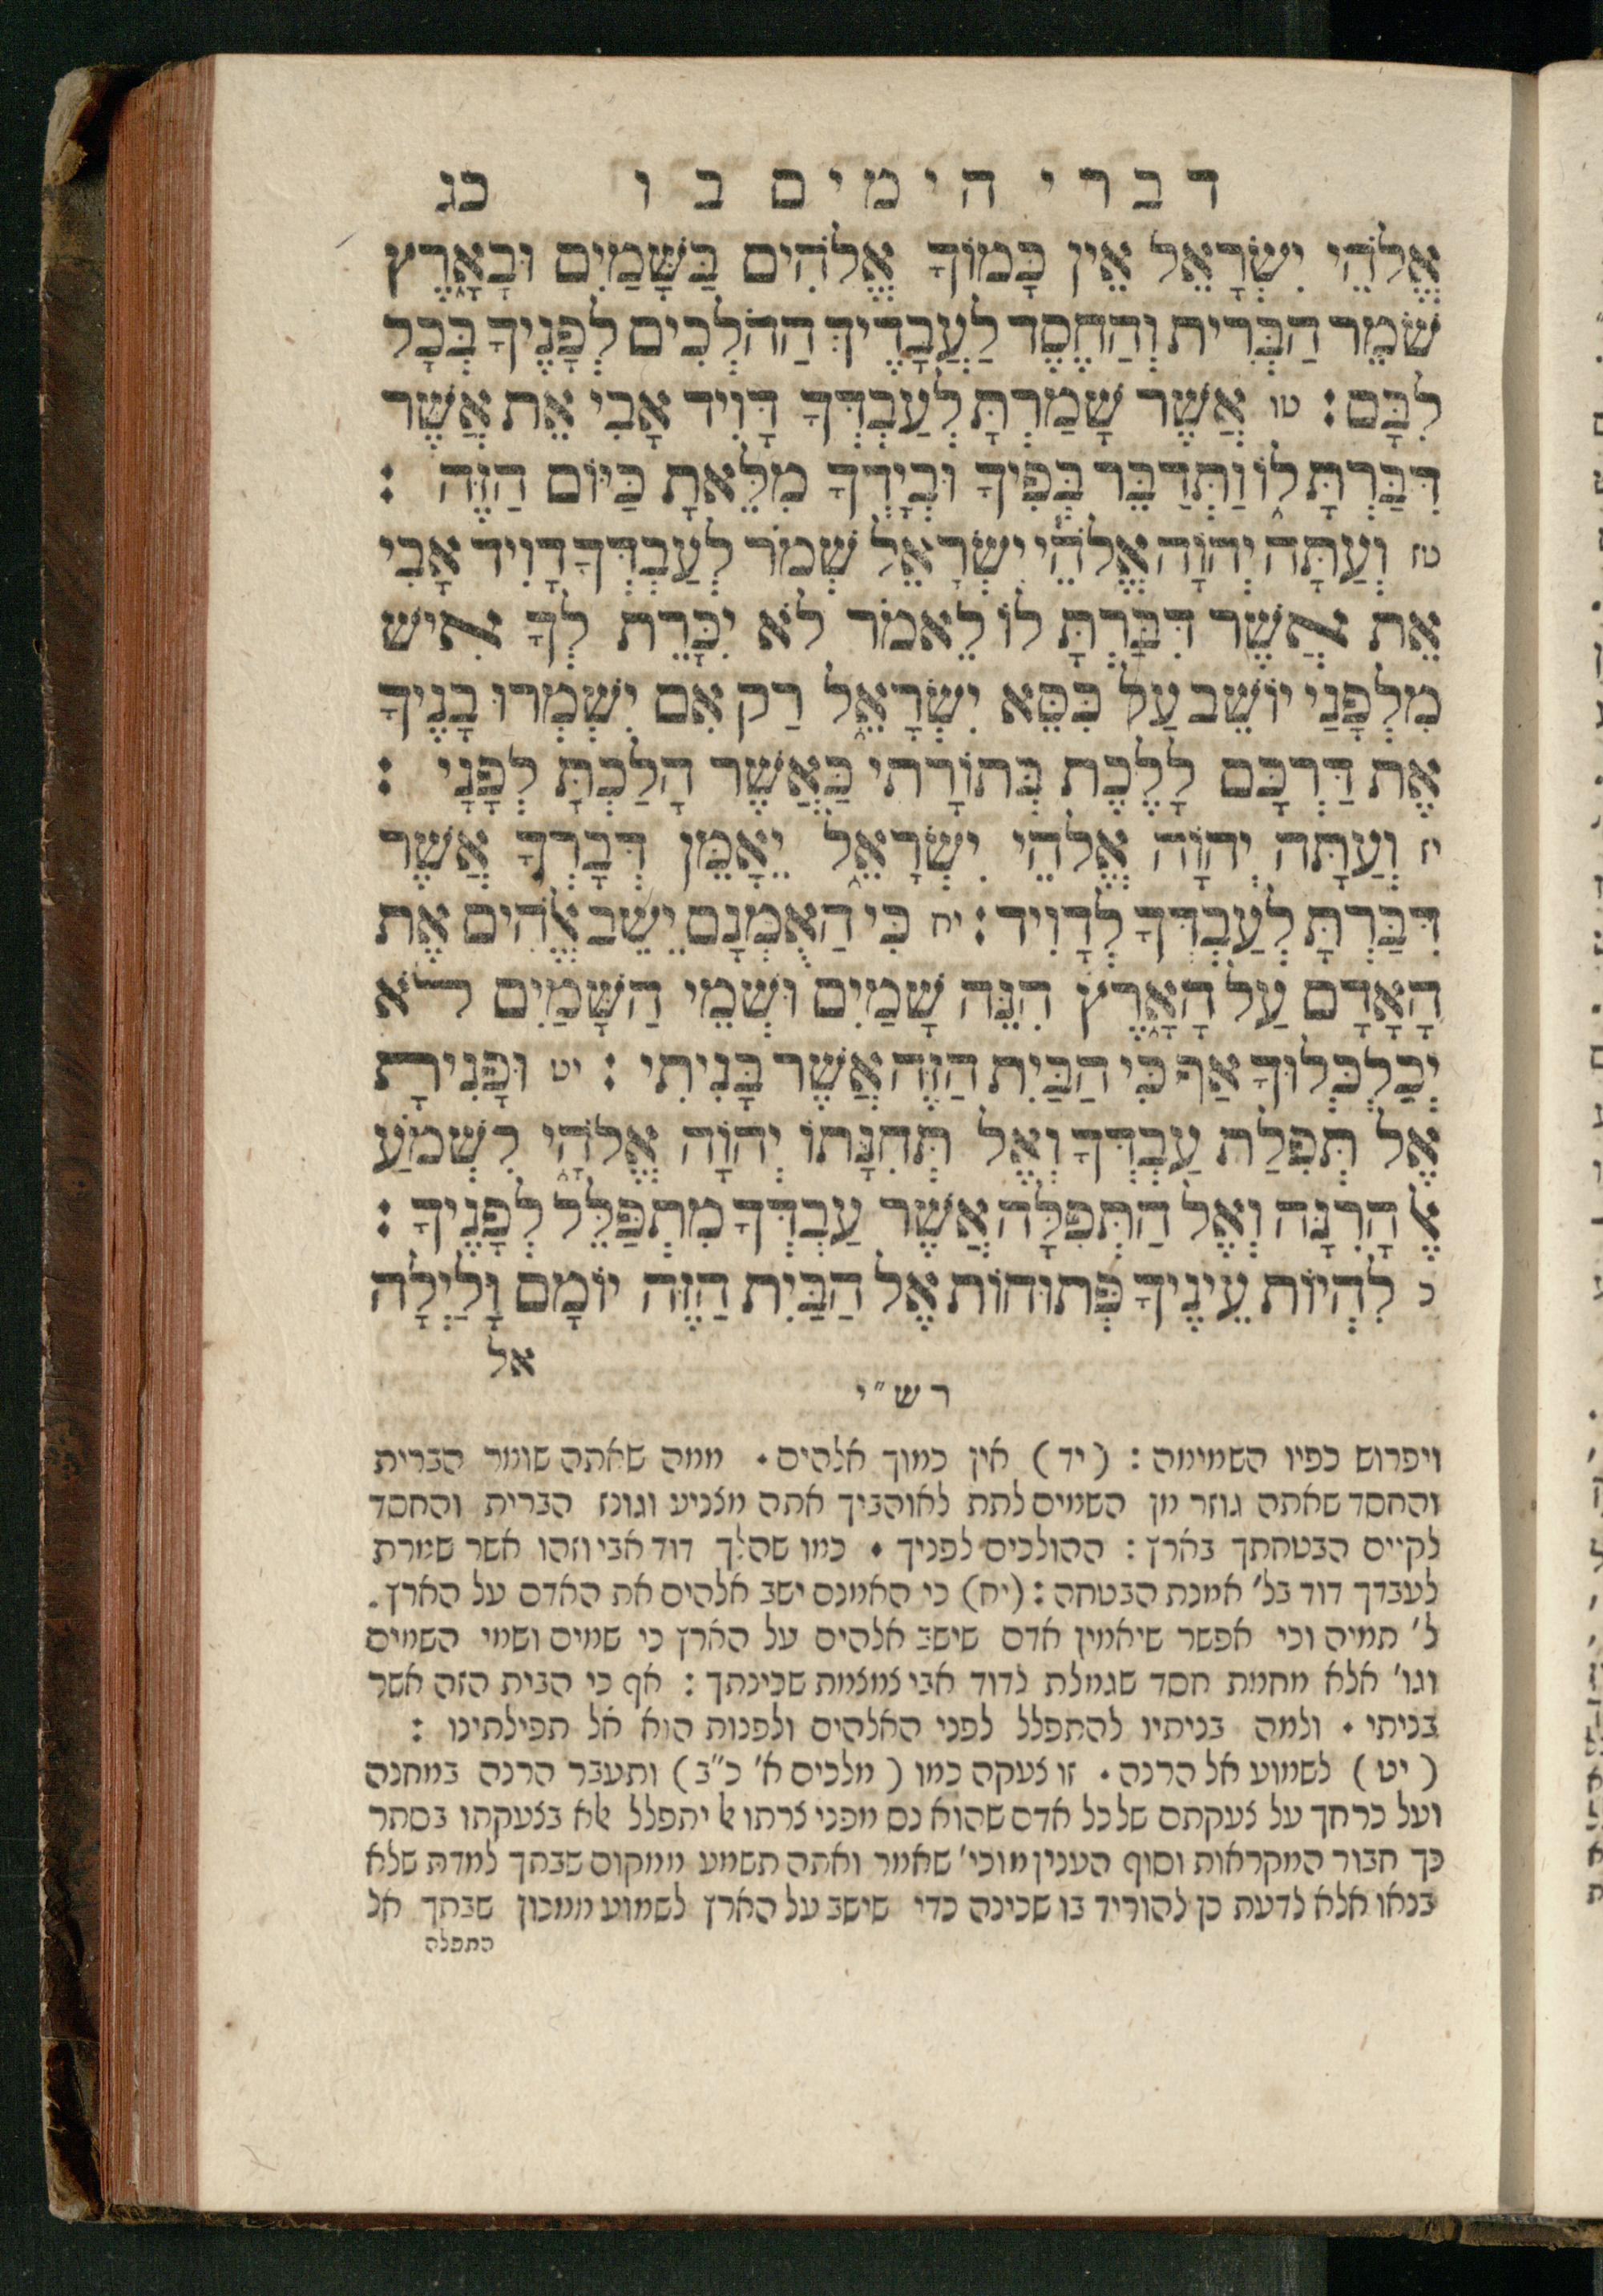 דברי הימים ב ו כג
אֱלֹהֵי יִשְׂרָאֵל אֵין כָּמוֹךָ אֱלֹהִים בַּשָּׁמַיִם וּבָאָרֶץ
שֹׁמֵר הַבְּרִית וְהַחֶסֶד לַעֲבָדֶיךָ הַהֹלְכִים לְפָנֶיךָ בְּכָל
לִבָּם : טו אֲשֶׁר שָׁמַרְתָּ לְעַבְדְּךָ דָּוִיד אָבִי אֵת אֲשֶׁר
דִּבַּרְתָּ לוֹ וַתְּדַבֵּר בְּפִיךָ וּבְיָדְךָ מִלֵּאתָ כַּיּוֹם הַזֶּה :
טז וְעַתָּה יְהוָֹה אֱלֹהֵי יִשְׂרָאֵל שְׁמֹר לְעַבְדְּךָ דָוִיד אָבִי
אֵת אֲשֶׁר דִּבַּרְתָּ לוֹ לֵאמֹר לֹא יִכָּרֵת לְךָ אִישׁ
מִלְּפָנַי יוֹשֵׁב עַל כִּסֵּא יִשְׂרָאֵל רַק אִם יִשְׁמְרוּ בָנֶיךָ
אֶת דַּרְכָּם לָלֶכֶת בְּתוֹרָתִי כַּאֲשֶׁר הָלַכְתָּ לְפָנָי :
יז וְעַתָּה יְהוָֹה אֱלֹהֵי יִשְׂרָאֵל יֵאָמֵן דְּבָרְךָ אֲשֶׁר
דִּבַּרְתָּ לְעַבְדְּךָ לְדָוִיד : יח כִּי הַאֻמְנָם יֵשֵׁב אֱלֹהִים אֶת
הָאָדָם עַל הָאָרֶץ הִנֵּה שָׁמַיִם וּשְׁמֵי הַשָּׁמַיִם לֹא
יְכַלְכְּלוּךָ אַף כִּי הַבַּיִת הַזֶּה אֲשֶׁר בָּנִיתִי : יט וּפָנִיתָ
אֶל תְּפִלַּת עַבְדְּךָ וְאֶל תְּחִנָּתוֹ יְהוָֹה אֱלֹהָי לִשְׁמֹעַ
אֶל הָרִנָּה וְאֶל הַתְּפִלָּה אֲשֶׁר עַבְדְּךָ מִתְפַּלֵּל לְפָנֶיךָ :
כ לִהְיוֹת עֵינֶיךָ פְּתוּחוֹת אֶל הַבַּיִת הַזֶּה יוֹמָם וָלַיְלָה
אל
רש״י
ויפרוש כפיו השמימה : (יד) אין כמוך אלהים . ממה שאתה שומר הברית
והחסד שאתה גוזר מן השמים לתת לאוהביך אתה מצניע וגונז הברית והחסד
לקיים הבטחתך בארץ : ההולכים לפניך . כמו שהלך דוד אבי וזהו אשר שמרת
לעבדך דוד בל׳ אמנת הבטחה : (יח) כי האמנם ישב אלהים את האדם על הארץ .
ל׳ תמיה וכי אפשר שיאמין אדם שישב אלהים על הארץ כי שמים ושמי השמים
וגו׳ אלא מחמת חסד שגמלת לדוד אבי צמצמת שכינתך : אף כי הבית הזה אשר
בניתי . ולמה בניתיו להתפלל לפני האלהים ולפנות הוא אל תפילתינו :
(יט) לשמוע אל הרנה . זו צעקה כמו (מלכים א׳ כ״ב) ותעבר הרנה במחנה
ועל כרחך על צעקתם של כל אדם שהוא נס מפני צרתו לא יתפלל אלא בצעקתו בסתר
כך חבור המקראות וסוף הענין מוכי׳ שאמר ואתה תשמע ממקום שבתך למדת שלא
בנאו אלא לדעת כן להוריד בו שכינה כדי שישב על הארץ לשמוע ממכון שבתך אל
התפלה